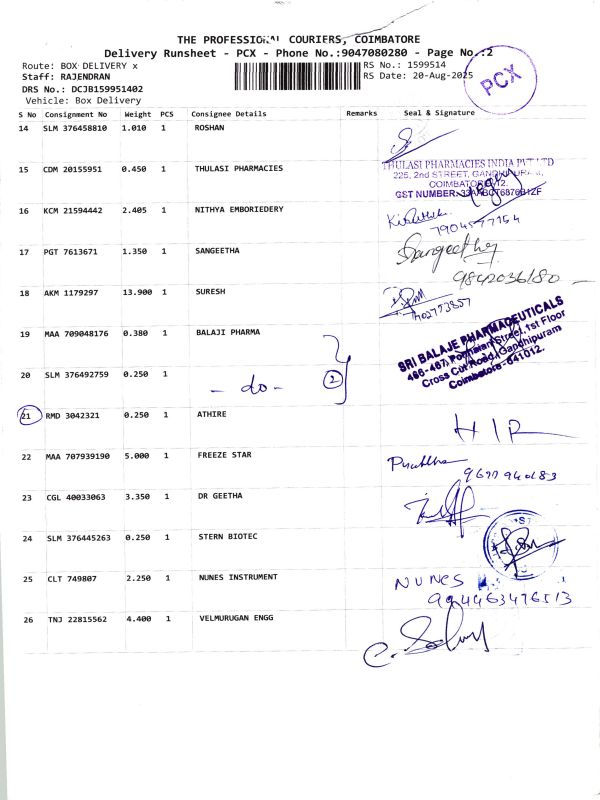 THE PROFESSIONAL COURIERS, COIMBATORE
Delivery Runsheet - PCX - Phone No.:9047080280 - Page No.:2
Route: BOX DELIVERY x
RS No.: 1599514
Staff: RAJENDRAN
RS Date: 20-Aug-2025
PCX
DRS No.: DCJB159951402
Vehicle: Box Delivery
S No Consignment No Weight PCS Consignee Details Remarks Seal & Signature
14 SLM 376458810 1.010 1 ROSHAN
15 CDM 20155951 0.450 1 THULASI PHARMACIES
THULASI PHARMACIES INDIA PVT LTD
225, 2nd STREET, GANDHIPURAM,
COIMBATORE-12.
GST NUMBER:
16 KCM 21594442 2.405 1 NITHYA EMBORIEDERY
7904577154
17 PGT 7613671 1.350 1 SANGEETHA
Sangeetha
9842036180
18 AKM 1179297 13.900 1 SURESH
19 MAA 709048176 0.380 1 BALAJI PHARMA
SRI BALAJE PHARMACEUTICALS
466-467, Street, 1st Floor
Cross Cut Road, Gandhipuram
Coimbatore-641012.
20 SLM 376492759 0.250 1
- do - 2
21 RMD 3042321 0.250 1 ATHIRE
22 MAA 707939190 5.000 1 FREEZE STAR
23 CGL 40033063 3.350 1 DR GEETHA
24 SLM 376445263 0.250 1 STERN BIOTEC
25 CLT 749807 2.250 1 NUNES INSTRUMENT
NUNES
26 TNJ 22815562 4.400 1 VELMURUGAN ENGG